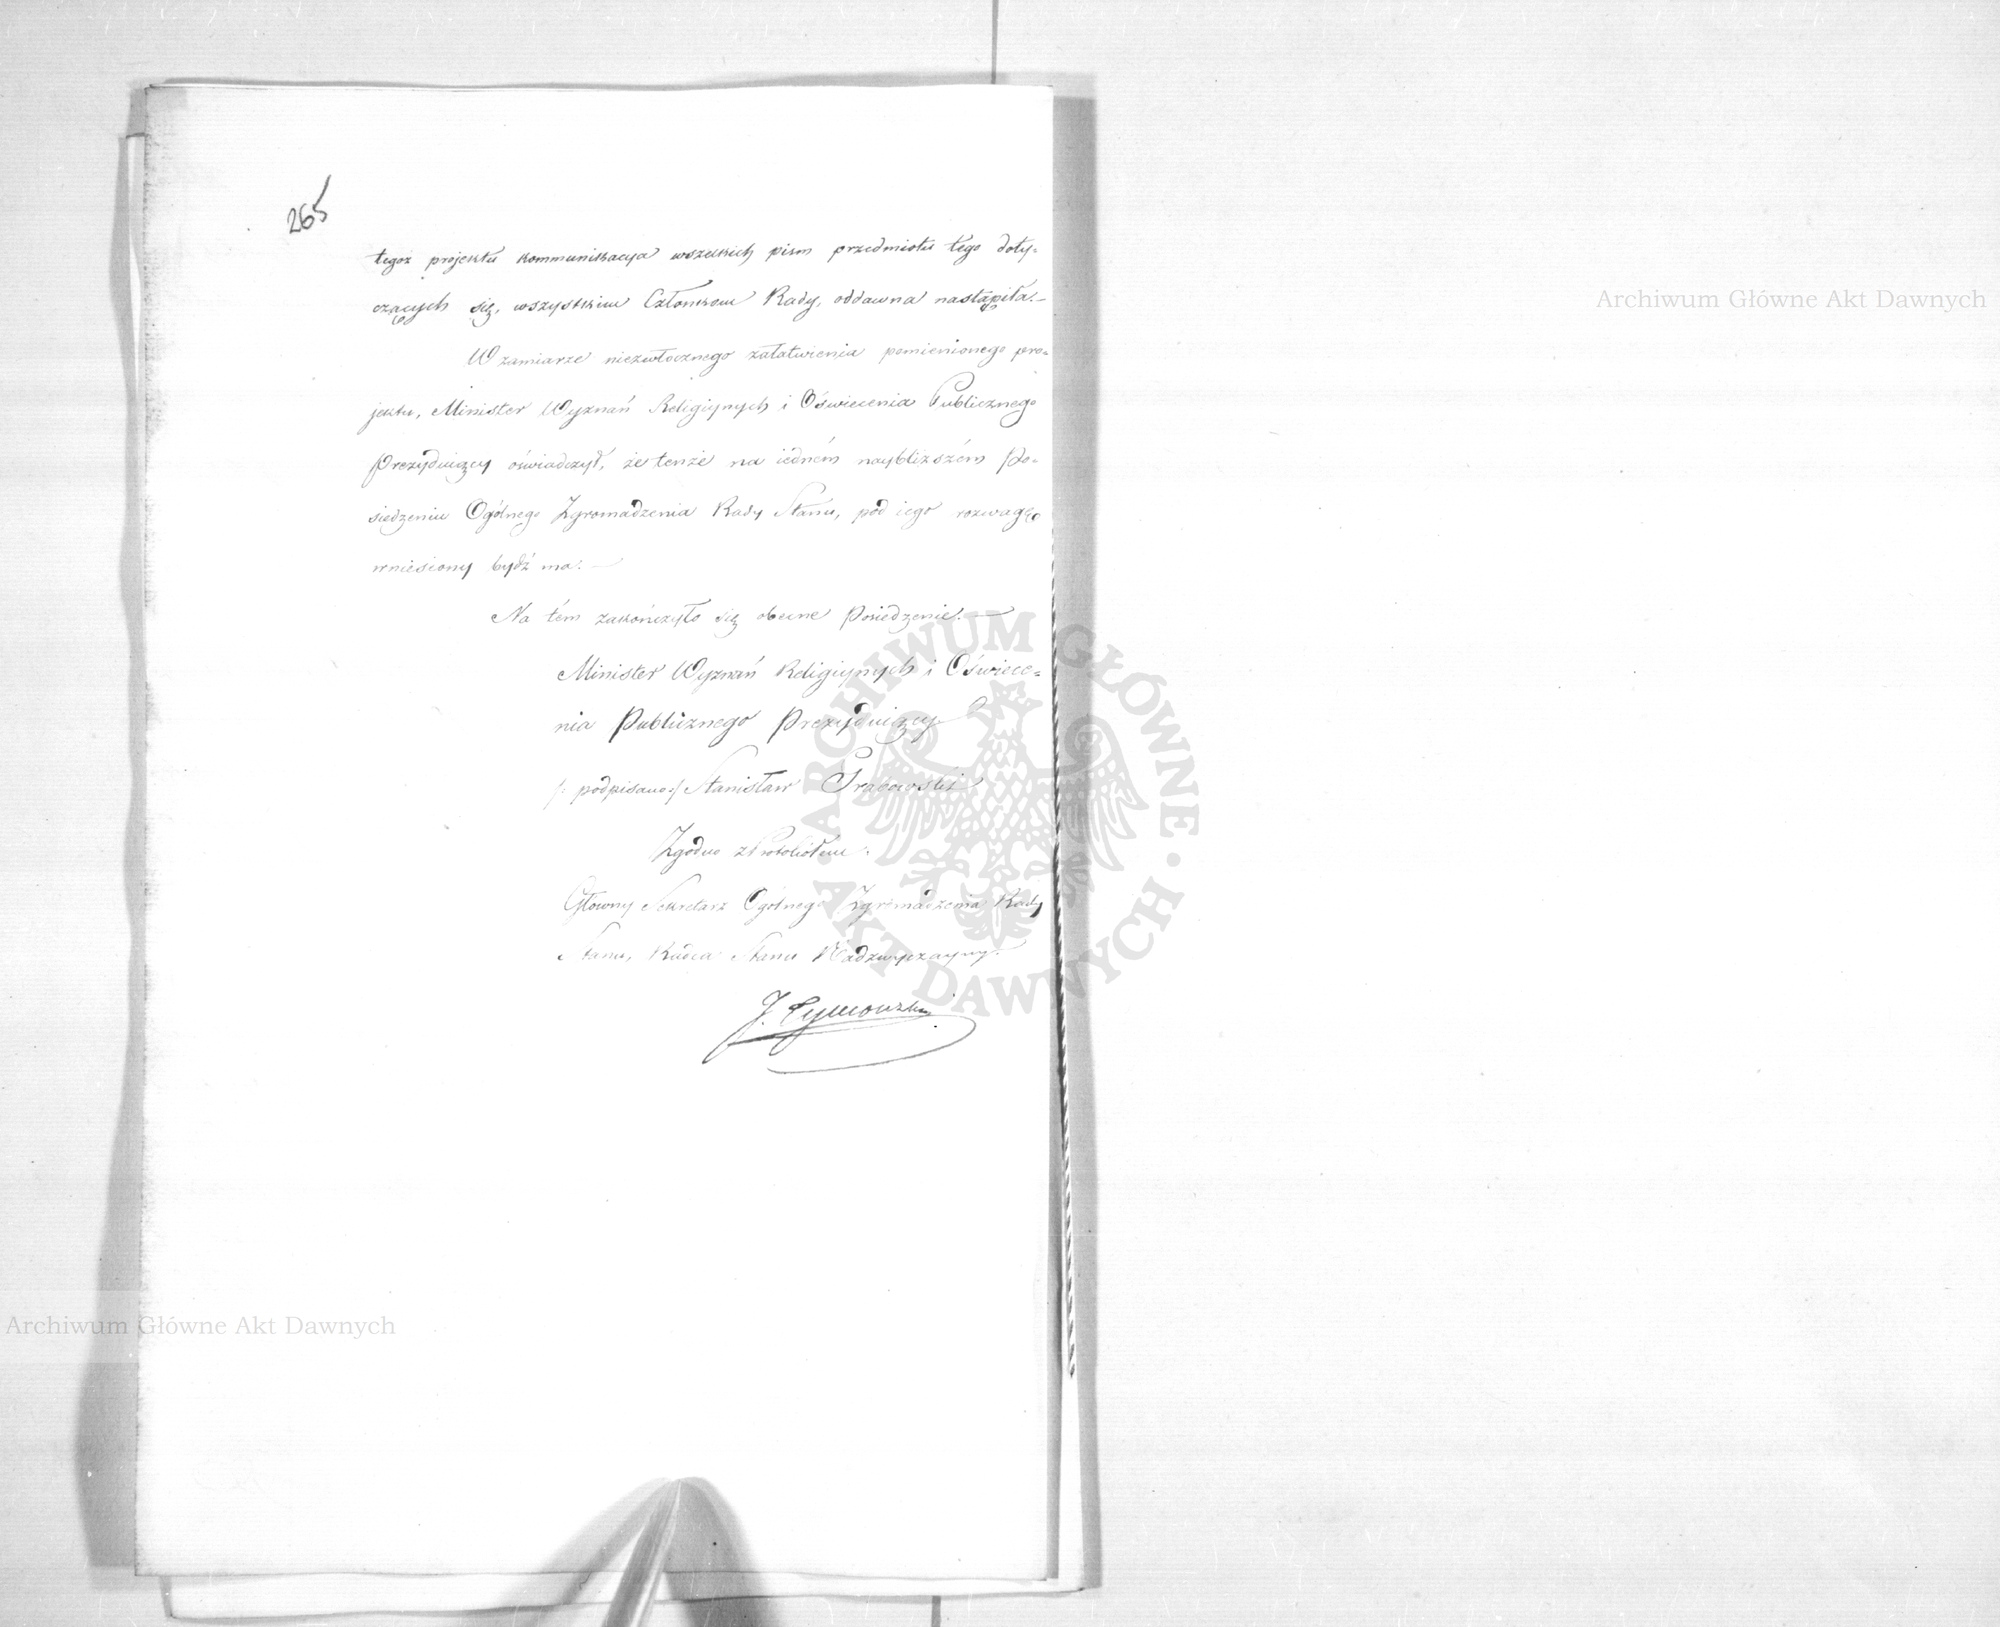 265
tegoż projektu kommunikacya wszelkich pism przedmiotu tego doty=
czących się, wszystkim Członkom Rady, oddawna nastąpiła. —
W zamiarze niezwłocznego załatwienia pomienionego pro=
jektu, Minister Wyznań Religiynych i Oświecenia Publicznego
Prezyduiący oświadczył, że tenże na iedném naybliższém Po=
siedzeniu Ogólnego Zgromadzenia Rady Stanu, pod iego rozwagę
wniesiony bydź ma. —
Na tém zakończyło się obecne Posiedzenie. —
Minister Wyznań Religiynych i Oświece=
nia Publicznego Prezyduiący
/: podpisano :/ Stanisław Grabowski
Zgodno z Protokółem.
Główny Sekretarz Ogólnego Zgromadzenia Rady
Stanu, Radca Stanu Nadzwyczayny.
J. Tymowski
Archiwum Główne Akt Dawnych
Archiwum Główne Akt Dawnych
ARCHIWUM GŁÓWNE
AKT DAWNYCH